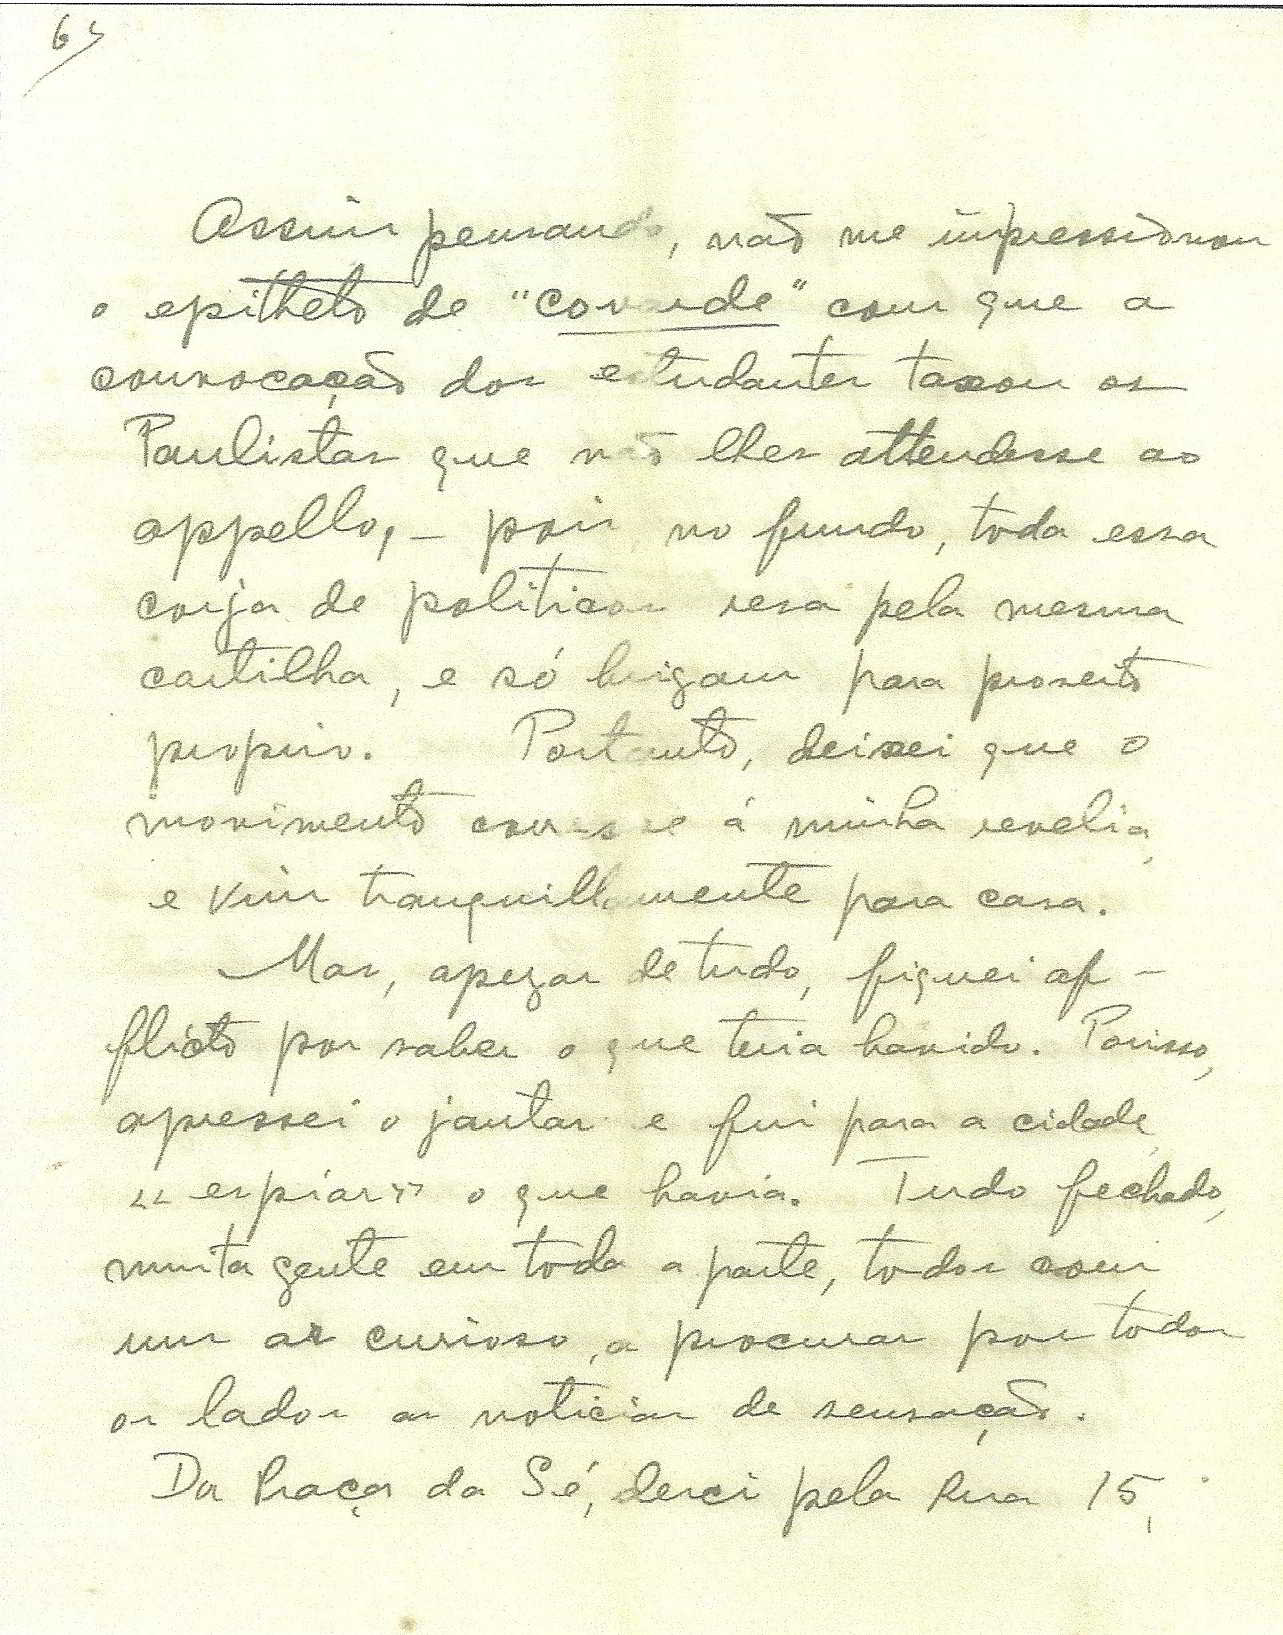 6
Assim pensando, não me impressionou
o epitheto de "covarde" com que a
convocação dos estudantes taxou os
Paulistas que não lhes attendesse ao
appello, – pois no fundo, toda essa
corja de politicos resa pela mesma
cartilha, e só brigam para proveito
proprio. Portanto, deixei que o
movimento corresse á minha revelia,
e vim tranquillamente para casa.
Mas, apezar de tudo, fiquei af-
flicto por saber o que teria havido. Porisso,
apressei o jantar e fui para a cidade,
"espiar" o que havia. Tudo fechado,
muita gente em toda a parte, todos com
um ar curioso, a procurar por todos
os lados as noticias de sensação.
Da Praça da Sé, desci pela Rua 15,